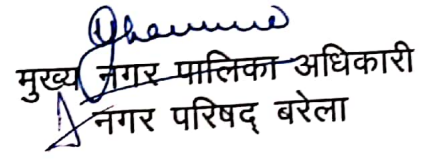 मुख्य नगर पालिका अधिकारी
नगर परिषद् बरेला